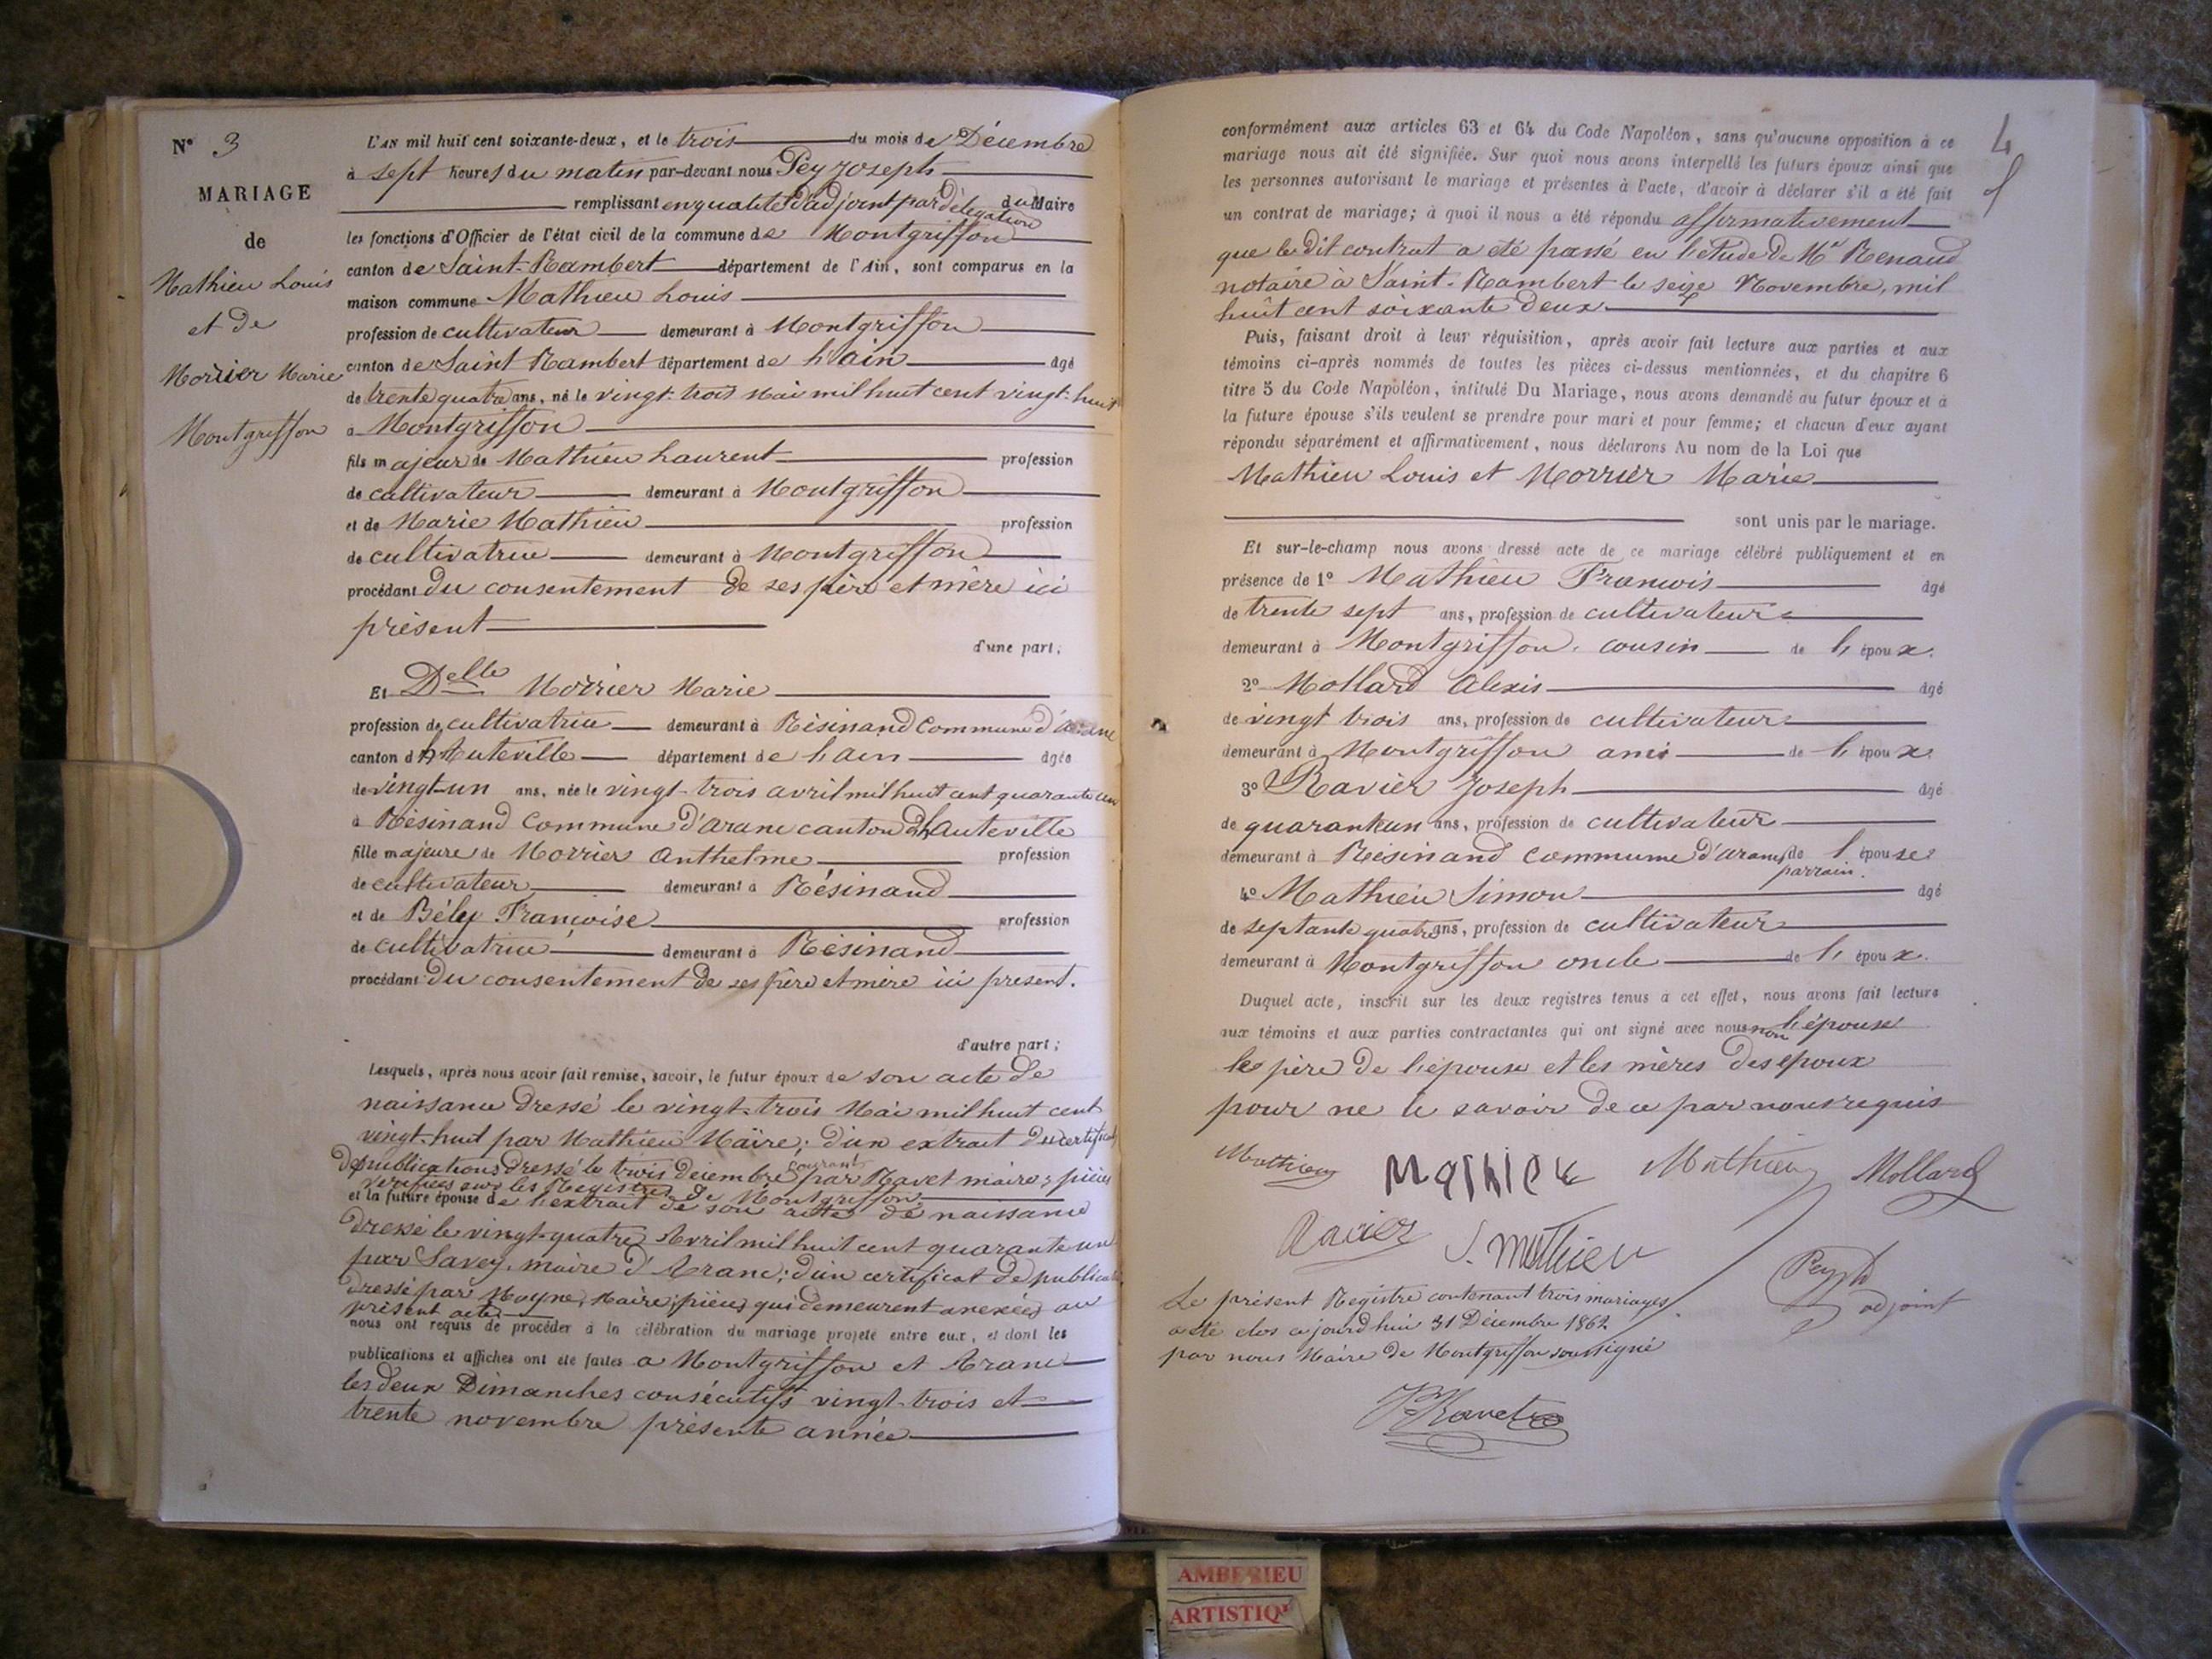 N° 3
MARIAGE
de
Mathieu Louis
et de
Morrier Marie
Montgriffon
L'AN mil huit cent soixante-deux, et le trois du mois de Décembre
à sept heures du matin par-devant nous Pey Joseph
remplissant en qualité d'adjoint par délégation du Maire
les fonctions d'Officier de l'état civil de la commune de Montgriffon
canton de Saint-Rambert département de l'Ain, sont comparus en la
maison commune Mathieu Louis
profession de cultivateur demeurant à Montgriffon
canton de Saint Rambert département de l'ain âgé
de trente quatre ans, né le vingt-trois Mai mil huit cent vingt-huit
à Montgriffon
fils majeur de Mathieu Laurent profession
de cultivateur demeurant à Montgriffon
et de Marie Mathieu profession
de cultivatrice demeurant à Montgriffon
procédant du consentement de ses père et mère ici
présent
d'une part;
Et Delle Morrier Marie
profession de cultivatrice demeurant à Résinand Commune d'Aranc
canton d'hauteville département de l'ain âgée
de vingt-un ans, née le vingt-trois avril mil huit cent quarante un
à Résinand Commune d'aranc canton d'hauteville
fille majeure de Morrier Anthelme profession
de cultivateur demeurant à Résinand
et de Bély Françoise profession
de cultivatrice demeurant à Résinand
procédant du consentement de ses père et mère ici présent.
d'autre part;
Lesquels, après nous avoir fait remise, savoir, le futur époux de son acte de
naissance dressé le vingt-trois Mai mil huit cent
vingt-huit par Mathieu Maire; d'un extrait du certificat
de publications dressé le trois décembre courant par Ravet maire; pièces
vérifiées sur les Registres de Montgriffon
et la future épouse de l'extrait de son acte de naissance
dressé le vingt-quatre Avril mil huit cent quarante un
par Savey, maire d'Aranc; d'un certificat de publication
dressé par Moyne, Maire; pièces qui demeurent anexées au
présent acte
nous ont requis de procéder à la célébration du mariage projeté entre eux, et dont les
publications et affiches ont été faites a Montgriffon et Aranc
les deux Dimanches consécutifs vingt-trois et
trente novembre présente année
4
conformément aux articles 63 et 64 du Code Napoléon, sans qu'aucune opposition à ce
mariage nous ait été signifiée. Sur quoi nous avons interpellé les futurs époux ainsi que
les personnes autorisant le mariage et présentes à l'acte, d'avoir à déclarer s'il a été fait
un contrat de mariage; à quoi il nous a été répondu affirmativement
que le dit contrat a été passé en l'étude de Me Renaud
notaire à Saint-Rambert le seize Novembre, mil
huit cent soixante deux
Puis, faisant droit à leur réquisition, après avoir fait lecture aux parties et aux
témoins ci-après nommés de toutes les pièces ci-dessus mentionnées, et du chapitre 6
titre 5 du Code Napoléon, intitulé Du Mariage, nous avons demandé au futur époux et à
la future épouse s'ils veulent se prendre pour mari et pour femme; et chacun d'eux ayant
répondu séparément et affirmativement, nous déclarons Au nom de la Loi que
Mathieu Louis et Morrier Marie
sont unis par le mariage.
Et sur-le-champ nous avons dressé acte de ce mariage célébré publiquement et en
présence de 1° Mathieu François âgé
de trente sept ans, profession de cultivateur
demeurant à Montgriffon. cousin de l'époux.
2° Mollard Alexis âgé
de vingt trois ans, profession de cultivateur
demeurant à Montgriffon ami de l'époux.
3° Ravier Joseph âgé
de quarante un ans, profession de cultivateur
demeurant à Résinand commune d'aranc de l'épouse
parrain.
4° Mathieu Simon âgé
de septante quatre ans, profession de cultivateur
demeurant à Montgriffon oncle de l'époux.
Duquel acte, inscrit sur les deux registres tenus à cet effet, nous avons fait lecture
aux témoins et aux parties contractantes qui ont signé avec nous non l'épouse
le père de l'épouse et les mères des époux
pour ne le savoir de ce par nous requis
Mathieu Mathieu Mathieu Mollard
Ravier J. Mathieu
Pey Jh
adjoint
Le présent Registre contenant trois mariages
a été clos ajourd'hui 31 Décembre 1862
par nous Maire de Montgriffon soussigné
Ravet
AMBERIEU
ARTISTIQ